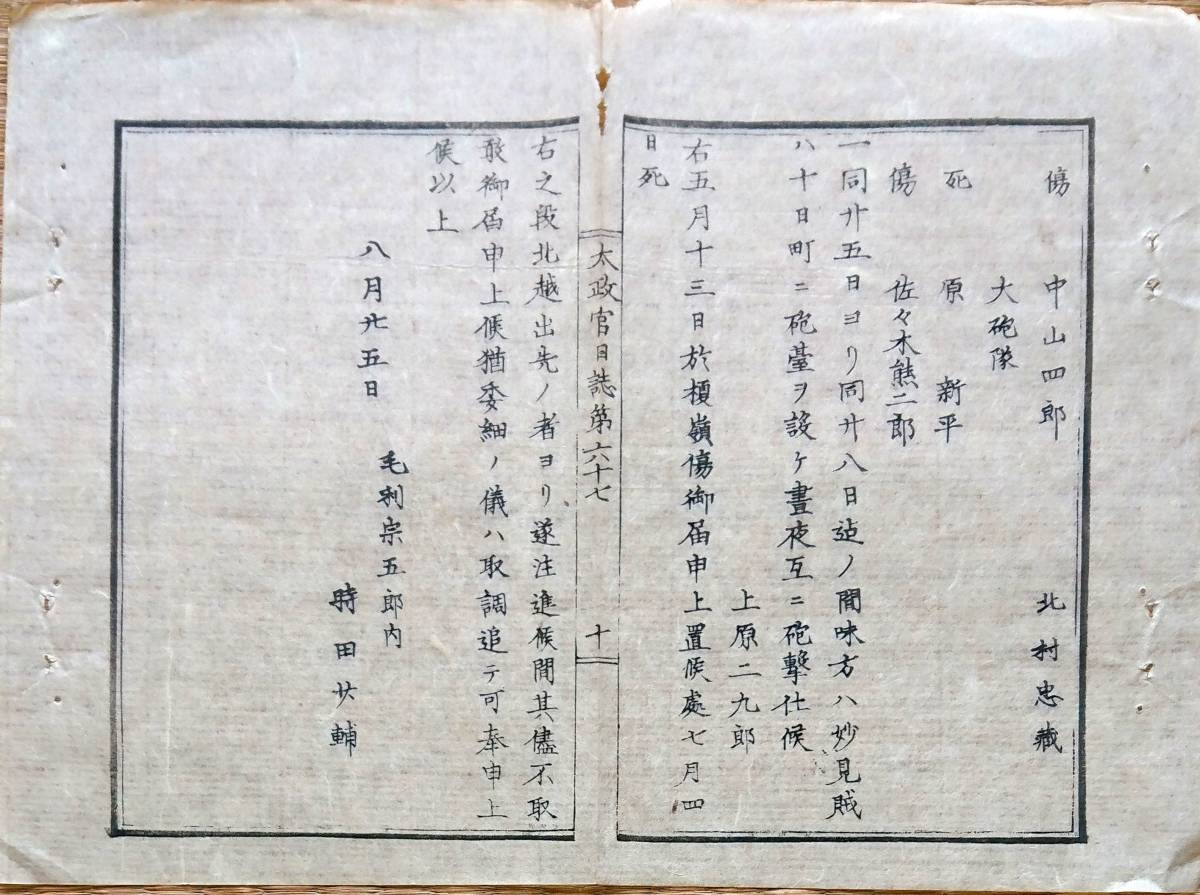 傷 中山四郎 北村忠藏
大砲隊
死 原新平
傷 佐々木熊二郎
一同廿五日ヨリ同廿八日迠ノ間味方ハ妙見賊
ハ十日町ニ砲臺ヲ設ケ晝夜互ニ砲擊仕候
上原二九郎
右五月十三日於榎嶺傷御届申上置候處七月四
日死
太政官日誌第六十七 十
右之段北越出先ノ者ヨリ遂注進候間其儘不取
敢御届申上候猶委細ノ儀ハ取調追テ可奉申上
候以上
八月廿五日
毛利宗五郎内
時田少輔